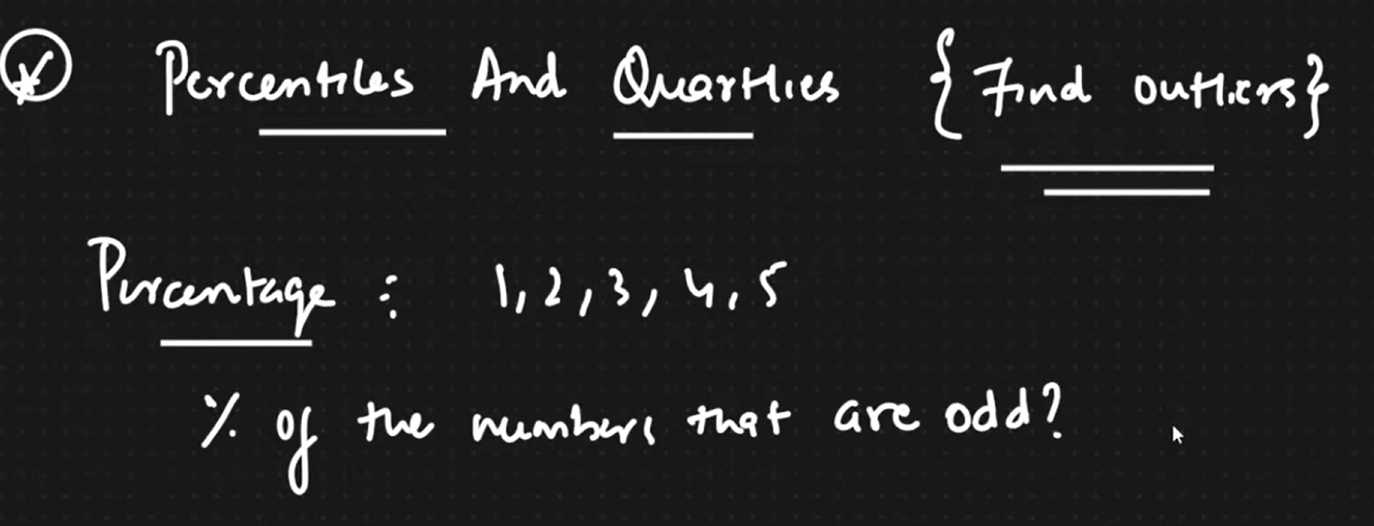 Percentiles And Quartiles {Find outliers}
Percentage : 1, 2, 3, 4, 5
% of the numbers that are odd?